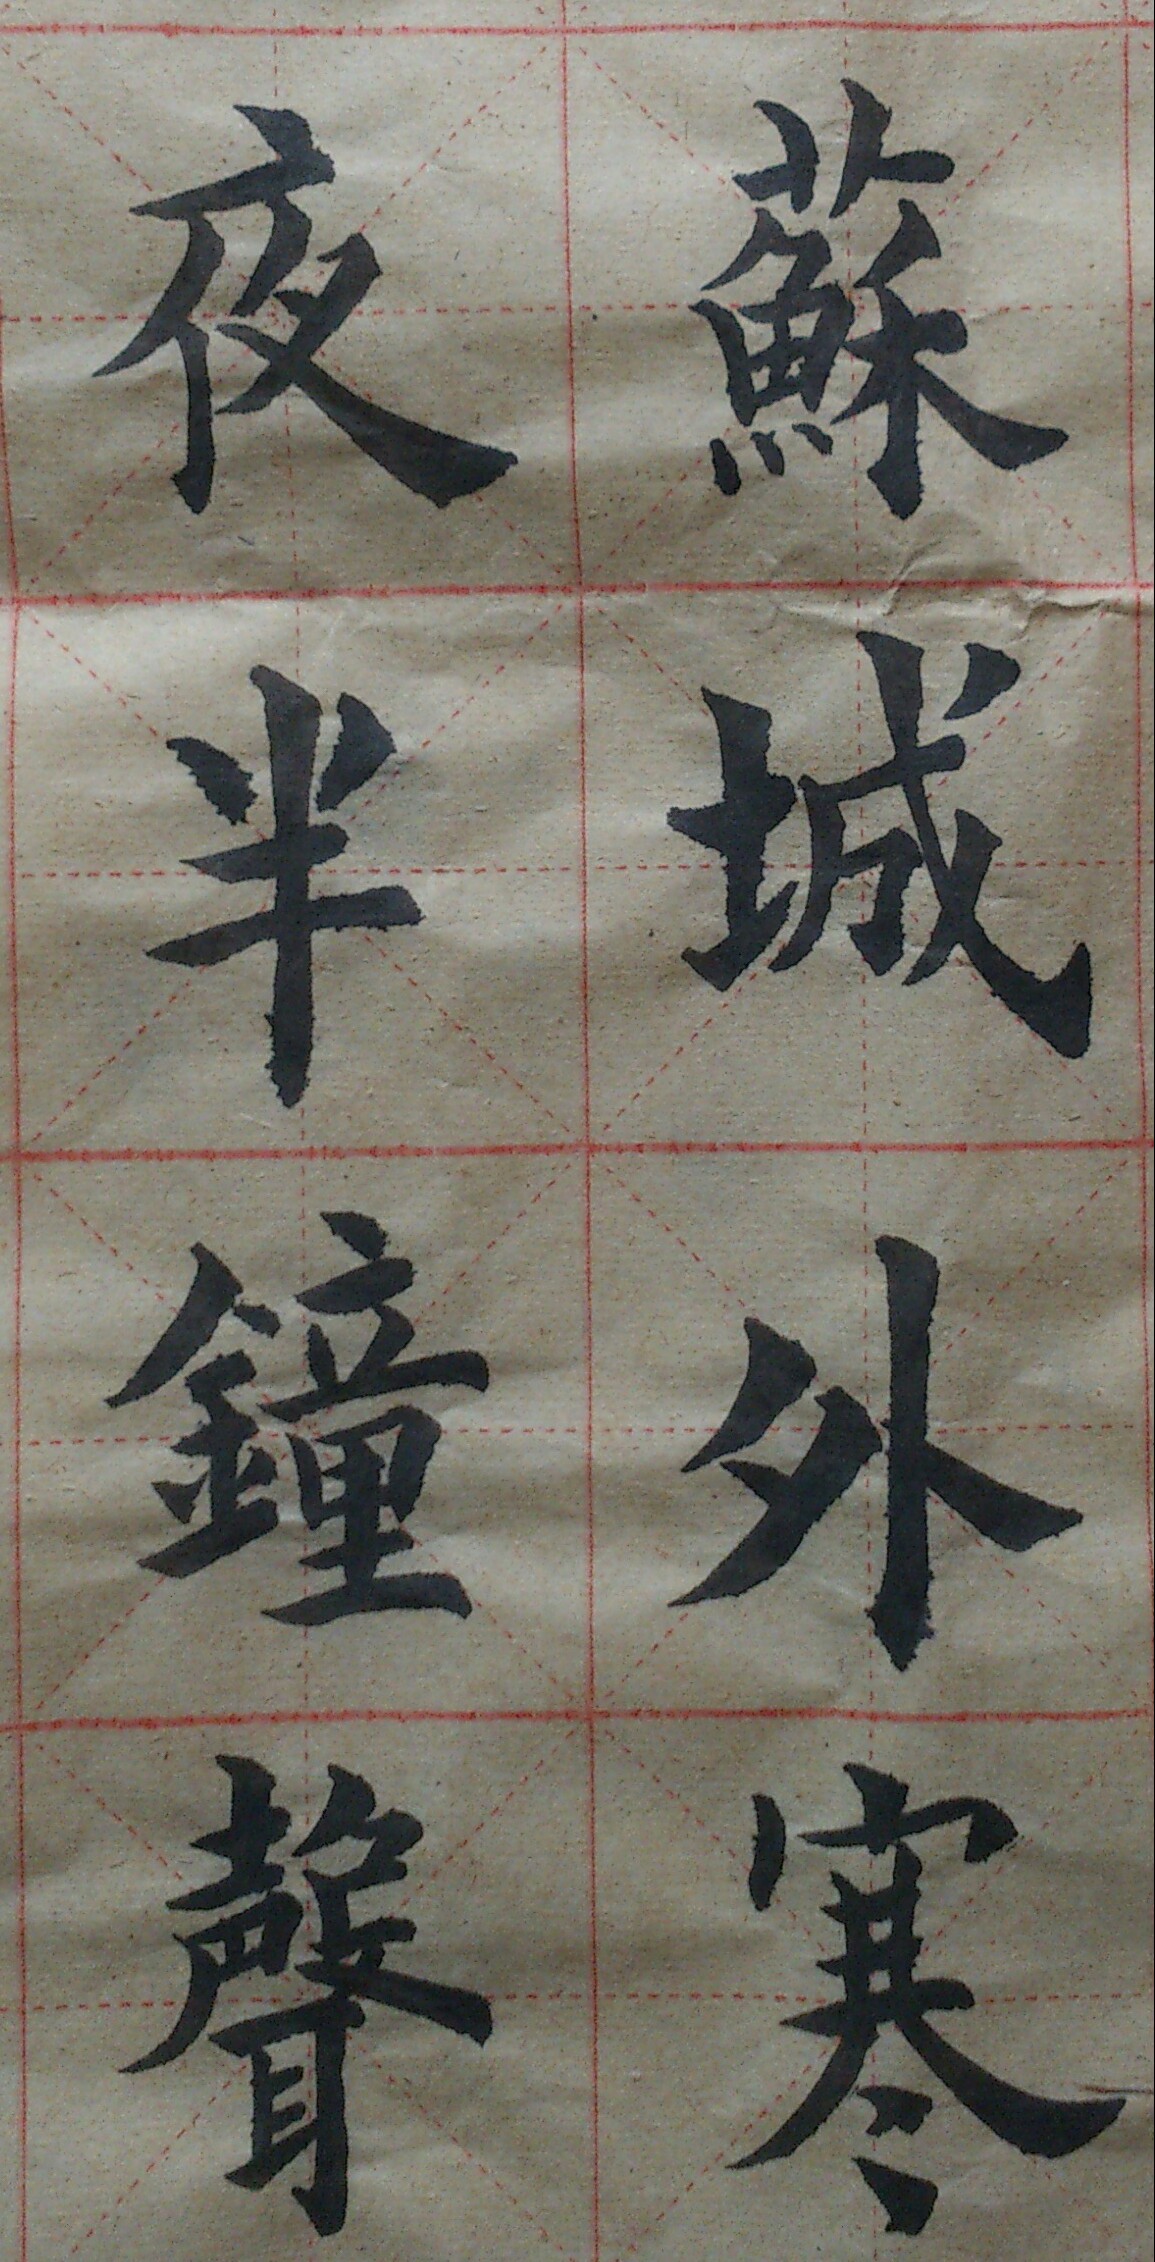 蘇城外寒
夜半鐘聲